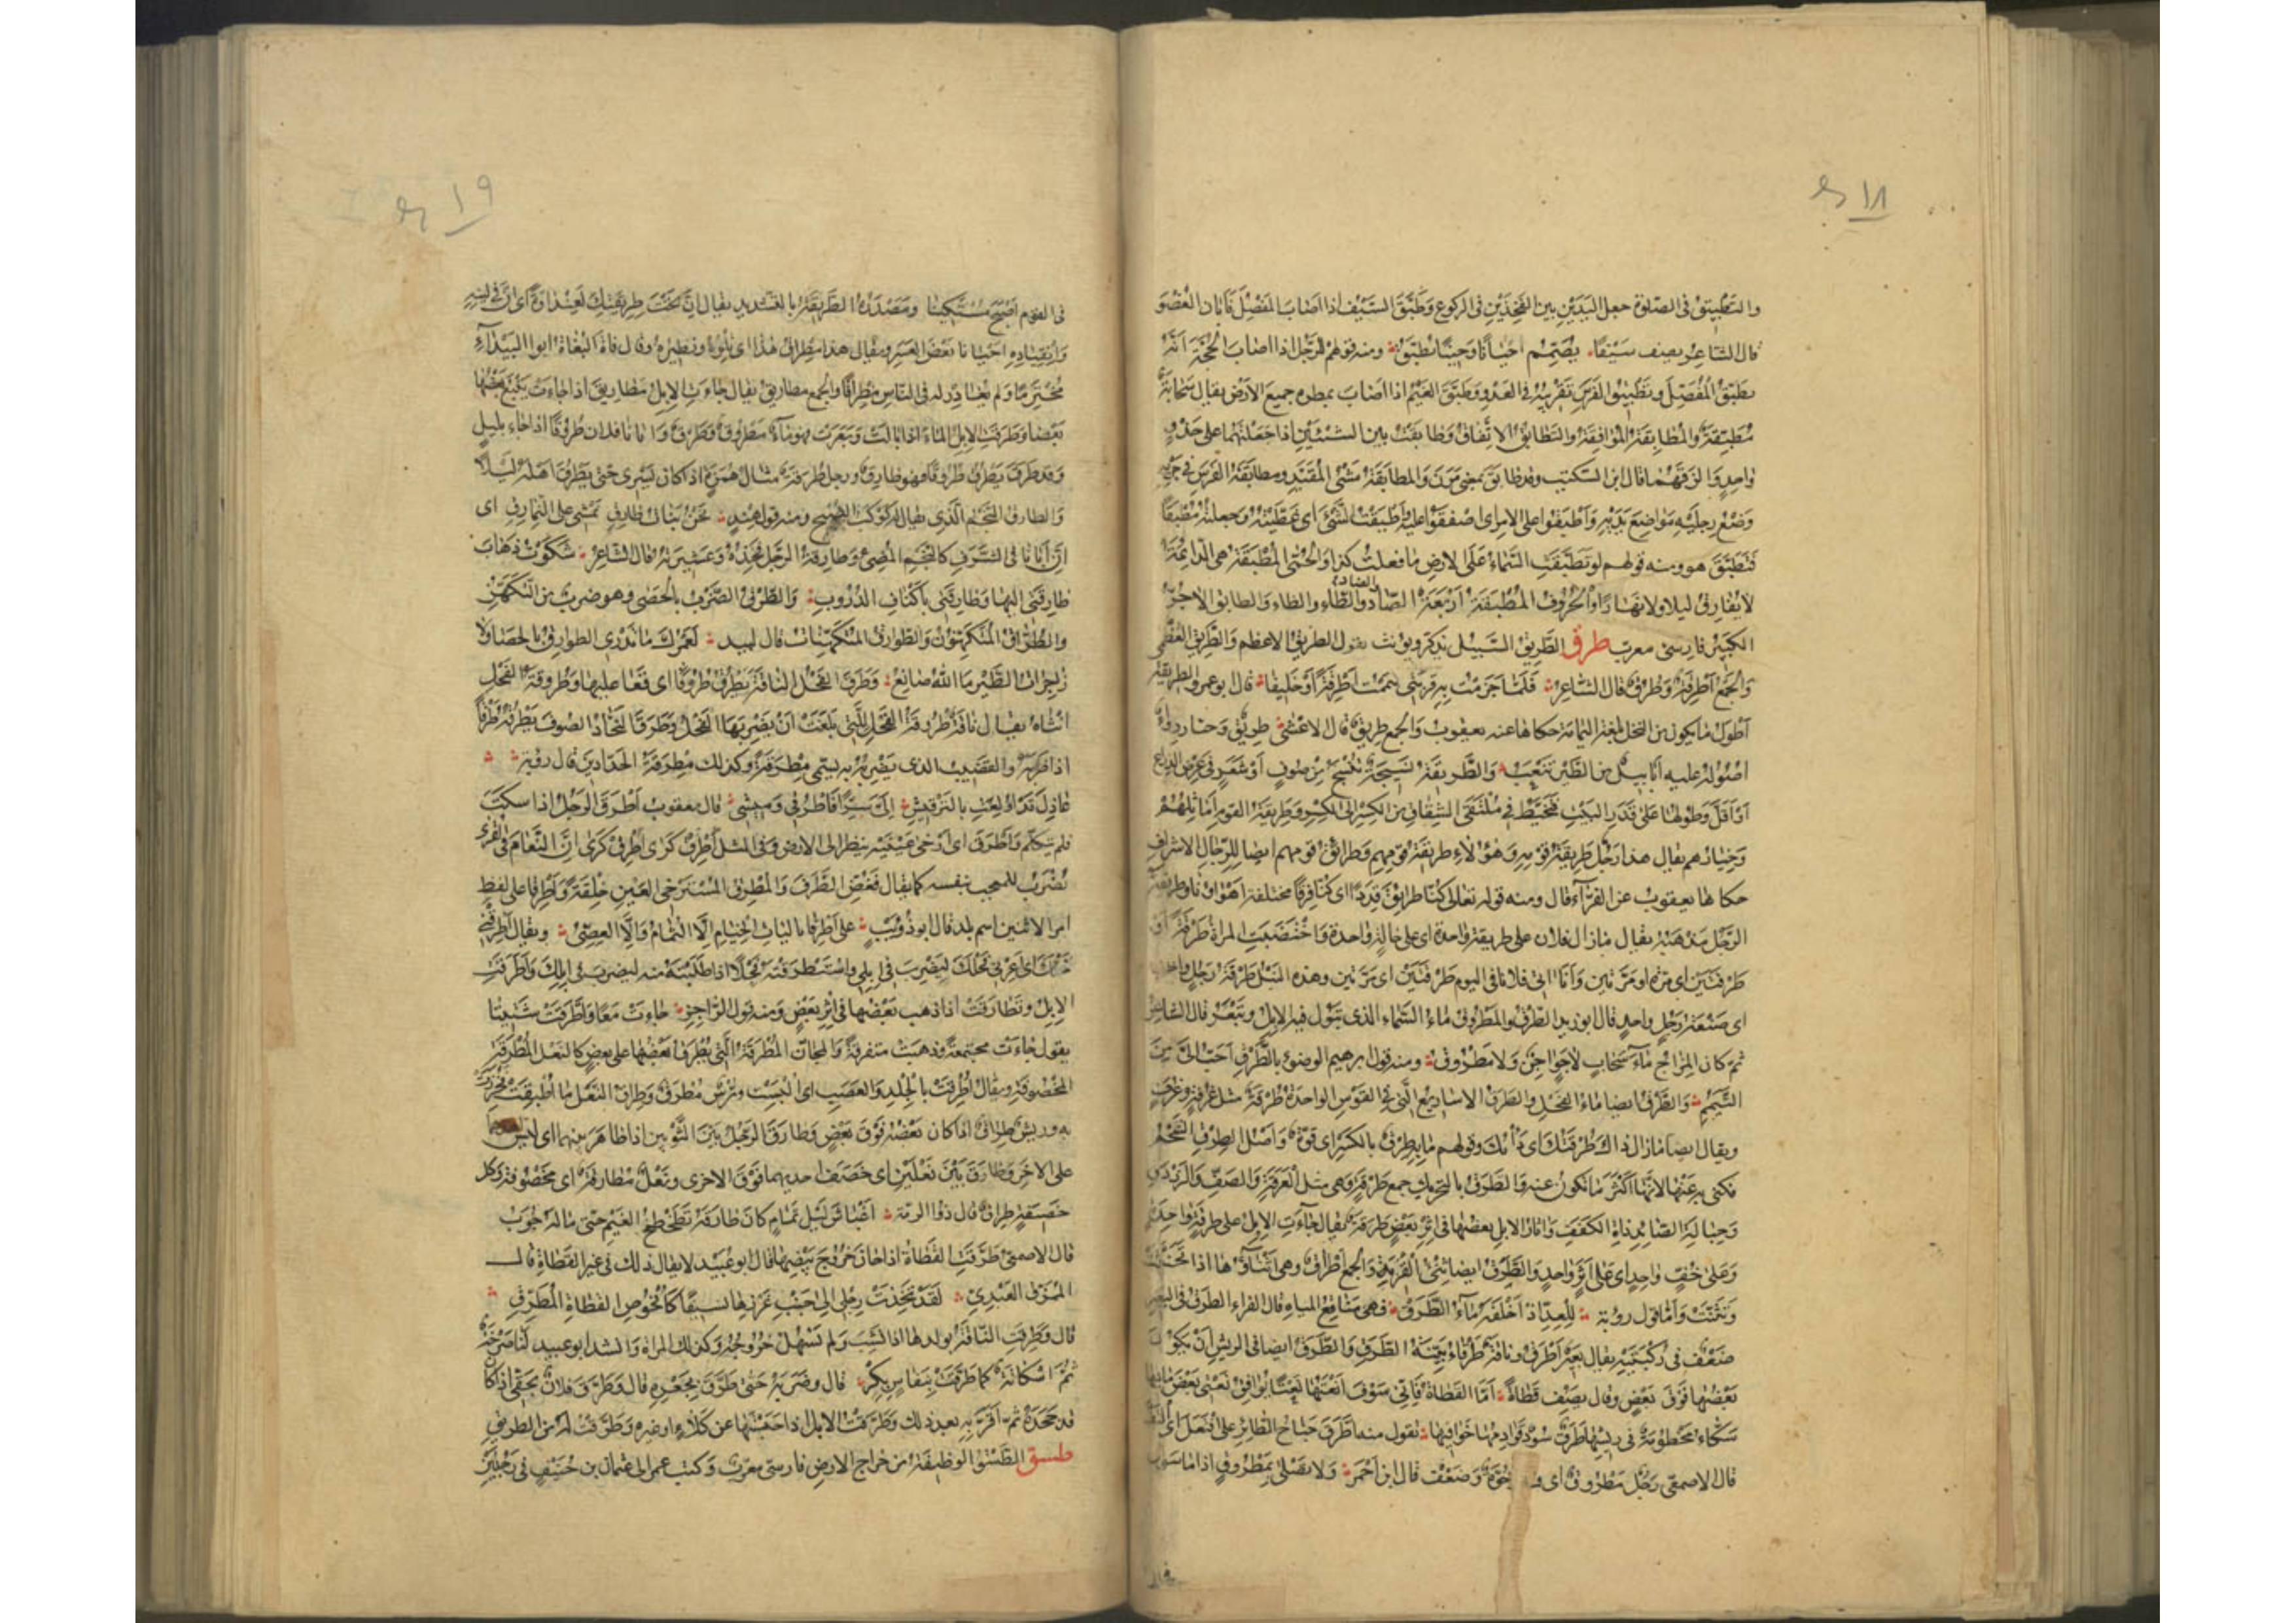 ١٨
والتطبيق في الصلوة جعل اليدين بين الفخذين في الركوع وطبق السيف اذا اصاب المفصل فابان العضو
قال الشاعر يصف سيفا يصمم احيانا وحينا يطبق ومنه قولهم للرجل اذا اصاب الحجة انه
يطبق المفصل وتطبيق الفرس تقريبه في العدو وطبق الغيم اذا اصاب بمطره جميع الارض يقال سحابة
مطبقة والمطابقة الموافقة والتطابق الاتفاق وطابقت بين الشيئين اذا جعلتهما على حذو
واحد والزقتهما قال ابن السكيت وقد طابق بمعنى مرن والمطابقة مشي المقيد ومطابقة الفرس في جريه
وضع رجليه مواضع يديه واطبقوا على الامر اى اصفقوا عليه اطبقت الشئ اى غطيته وجعلته مطبقا
فتطبق هو ومنه قولهم لو تطبقت السماء على الارض ما فعلت كذا والحمى المطبقة هى الدائمة
لا تفارق ليلا ولا نهارا والحروف المطبقة اربعة الصاد والضاد والطاء والظاء والطابق الاجر
الكبير فارسى معرب طرق الطريق السبيل يذكر ويونث تقول الطريق الاعظم والطريق العظمى
والجمع اطرقة وطرق قال الشاعر فلما جزمت به قربتى تيممت اطرقة او خليفا قال ابو عمرو الطريقة
اطول ما يكون من النخل بلغة اليمامة حكاها عنه يعقوب والجمع طريق قال الاعشى طريق وجبار رواء
اصوله عليه ابابيل من الطير تنعب والطريقة نسيجة تنسج من صوف او شعر فى عرض الذراع
او اقل وطولها على قدر البيت فتخيط فى ملتقى الشقاق من الكسر الى الكسر وطريقة القوم اماثلهم
وخيارهم يقال هذا رجل طريقة قومه وهؤلاء طريقة قومهم وطرائق قومهم ايضا للرجال الاشراف
حكاها يعقوب عن الفراء قال ومنه قوله تعالى كنا طرائق قددا اى كنا فرقا مختلفة اهواؤنا وطريقة
الرجل مذهبه يقال ما زال فلان على طريقة واحدة اى على حالة واحدة واختضبت المراة طرقة او
طرقتين اى مرة او مرتين وانا اتى فلانا فى اليوم طرقتين اى مرتين وهذه النبل طرقة رجل واحد
اى صنعة رجل واحد قال ابو زيد الطرق والمطروق ماء السماء الذى تبول فيه الابل وتبعر قال الشاعر
ثم كان المزاج ماء سحاب لا جو اجن ولا مطروق ومنه قول ابرهيم الوضوء بالطرق احب الى من
التيمم والطرق ايضا ماء الفحل والطرق الاساريع التى فى القوس الواحدة طرقة مثل غرفة وغرف
ويقال ايضا ما زال ذاك طرقتك اى دأبك وقولهم ما به طرق بالكسر اى قوة واصل الطرق الشحم
فكنى به عنها لانها اكثر ما تكون عنه والطرق بالتحريك جمع طرقة وهى مثل العرقة والصف والرزدق
وحبالة الصائد ذات الكفف واثار الابل بعضها فى اثر بعض طرقة يقال جاءت الابل على طرقة واحدة
وعلى خف واحد اى على اثر واحد والطرق ايضا ثنى القربة والجمع اطراق وهى اثناؤها اذا تخنثت
وتثنت واما قول روبة للعد اذ اخلفه ماء الطرق فهى مناقع المياه قال الفراء الطرق فى البعير
ضعف فى ركبتيه يقال بعير اطرق وناقة طرقاء بينة الطرق والطرق ايضا فى الريش ان يكون
بعضها فوق بعض وقال يصف قطاة اما القطاة فانى سوف انعتها نعتا يوافق نعتى بعض ما فيها
سكاء مخطومة فى ريشها طرق سود قوادمها خوافيها تقول منه اطرق جناح الطائر على افتعل اى التف
قال الاصمعى رجل مطروق اى فيه رخوة وضعف قال ابن احمر ولا تصلى بمطروق اذا ما سرى
١٩
فى القوم اصبح مستكينا ومصدره الطريقة بالتشديد يقال ان تحت طريقتك لعندأوة اى ان فى لينه
وانقياده احيانا بعض العسر ويقال هذا مطراق هذا اى تلوه ونظيره وقال فات البغاة ابو البيداء
محتزما ولم يغادر له فى الناس مطراقا والجمع مطاريق يقال جاءت الابل مطاريق اذا جاءت يتبع بعضها
بعضا وطرقت الابل الماء اذا بالت وبعرت فهو ماء مطروق وطرق واتانا فلان طروقا اذا جاء بليل
وقد طرق يطرق طروقا فهو طارق ورجل طرقة مثال همزة اذا كان يسرى حتى يطرق اهله ليلا
والطارق النجم الذى يقال له كوكب الصبح ومنه قول هند نحن بنات طارق نمشى على النمارق اى
ان ابانا فى الشرف كالنجم المضئ وطارقة الرجل فخذه وعشيرته قال الشاعر شكوت ذهاب
طارقتى اليها وطارقتى باكناف الدروب والطرق الضرب بالحصى وهو ضرب من التكهن
والطراق المتكهنون والطوارق المتكهنات قال لبيد لعمرك ما تدرى الطوارق بالحصا ولا
زاجرات الطير ما الله صانع وطرق الفحل الناقة يطرق طروقا اى قعا عليها وطروقة الفحل
انثاه يقال ناقة طروقة الفحل للتى بلغت ان يضربها الفحل وطرق النجاد الصوف يطرقه طرقا
اذا ضربه والقضيب الذى يضربه به يسمى مطرقة وكذلك مطرقة الحدادين قال روبة
عاذل قد اولعت بالترقيش الى سرا فاطرقى وميشى قال يعقوب اطرق الرجل اذا سكت
فلم يتكلم واطرق اى ارخى عينيه ينظر الى الارض وفى المثل اطرق كرى اطرق كرى ان النعام فى القرى
يضرب للمعجب بنفسه كما يقال فغض الطرف والمطرق المسترخى العين خلقة واطرقا على لفظ
امر الاثنين اسم بلد قال ابو ذويب على اطرقا باليات الخيام الا الثمام والا العصى ويقال اطرقنى
فحلك اى اعرنى فحلك ليضرب فى ابلى واستطرقته فحلا اذا طلبته منه ليضرب فى ابلك واطرقت
الابل وتطارقت اذا ذهب بعضها فى اثر بعض ومنه قول الراجز جاءت معا واطرقت شتيتا
يقول جاءت مجتمعة وذهبت متفرقة والمجان المطرقة التى يطرق بعضها على بعض كالنعل المطرقة
المخصوفة ويقال اطرقت بالجلد والعصب اى البست وترس مطرق وطراق النعل ما اطبقت فخرزت
به وريش طراق اذا كان بعضه فوق بعض وطارق الرجل بين الثوبين اذا ظاهر بينهما اى لبس احدهما
على الاخر وطارق بين نعلين اى خصف احديهما فوق الاخرى ونعل مطارقة اى مخصوفة وكل
خصيفة طراق قال ذو الرمة اغباش ليل تمام كان طارقه تطخطخ الغيم حتى ماله جوب
قال الاصمعى طرقت القطاة اذا حان خروج بيضها قال ابو عبيد لا يقال ذلك فى غير القطاة قال
الممزق العبدى لقد تخذت رجلى الى جنب غرزها نسيفا كافحوص القطاة المطرق
قال وطرقت الناقة بولدها اذا نشب ولم تسهل خروجه وكذلك المراة وانشد ابو عبيد لنا صرخة
ثم اسكاتة كما طرقت بنفاس بكر قال وضربه حتى طرق بجعره قال وطرق فلان بحقى اذا كان
قد جحده ثم اقر به بعد ذلك وطرقت الابل اذا حبستها عن كلاء او غيره وطرقت له من الطريق
طسق الطسق الوظيفة من خراج الارض فارسى معرب وكتب عمر الى عثمان بن حنيف فى رجلين